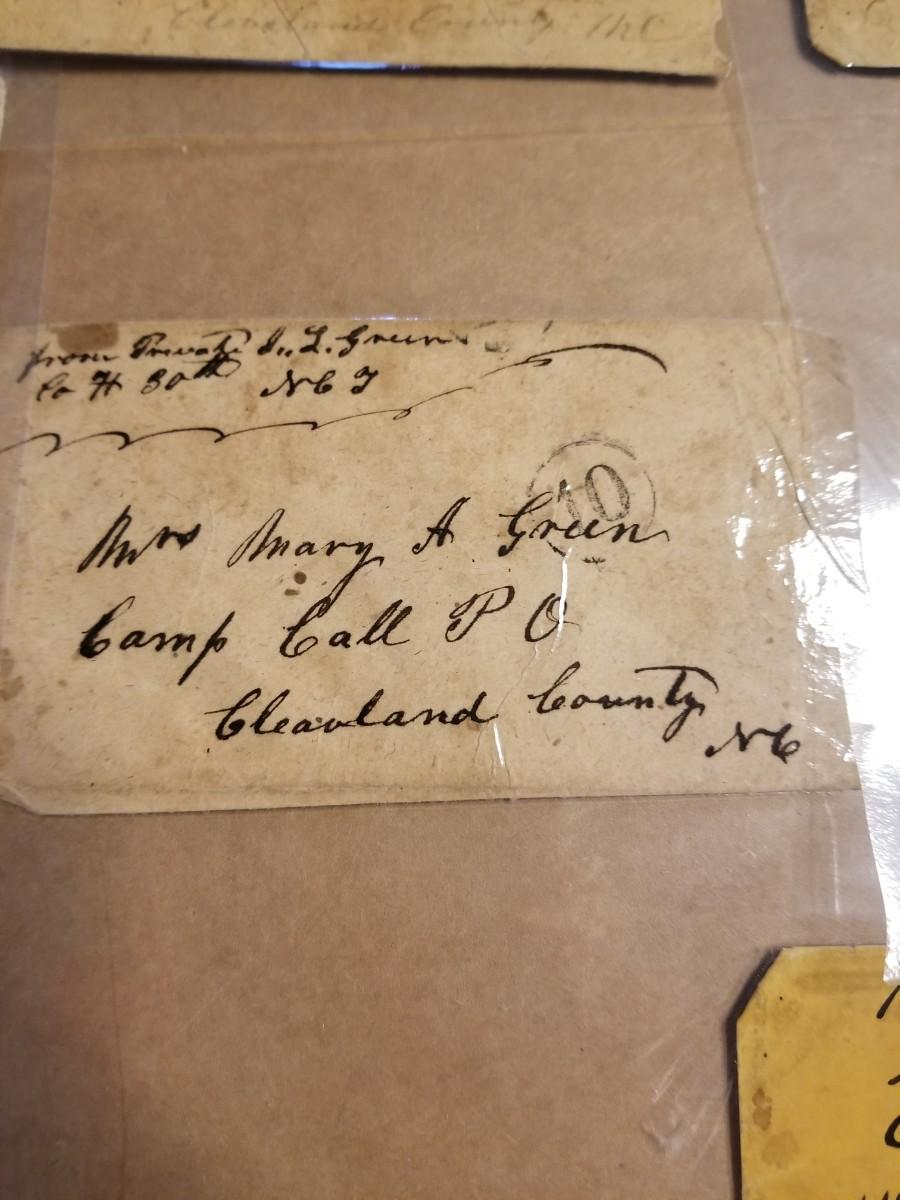 Cleveland County NC
from Private L. Green
Co H 30th NC T
10
Mrs Mary A Green
Camp Call P O
Cleavland County
NC